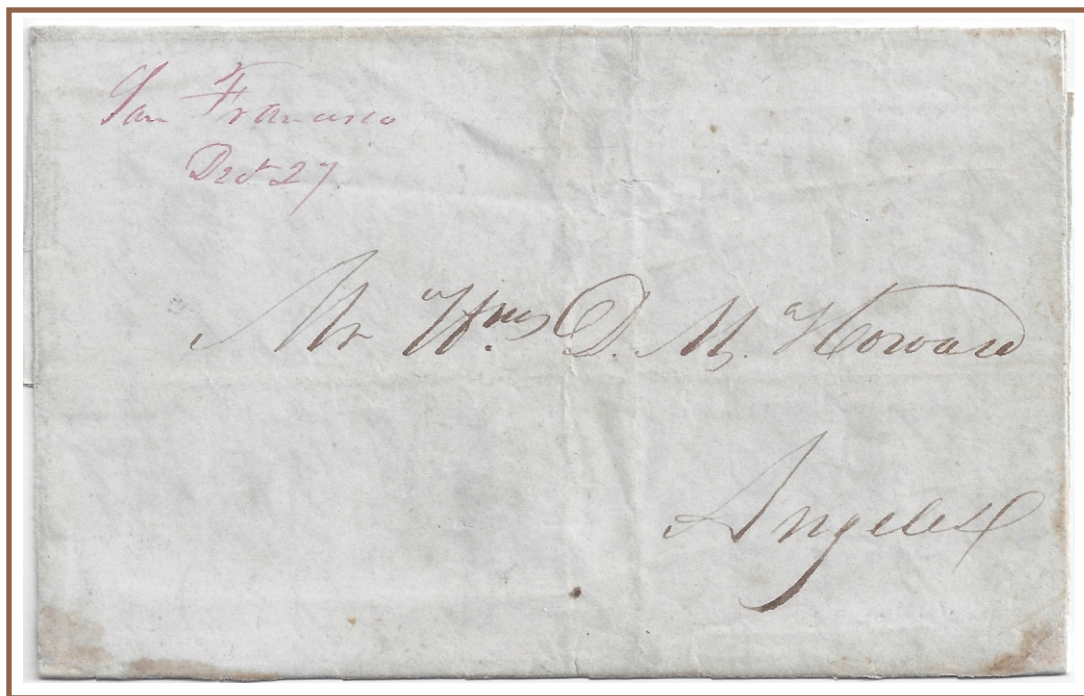 San Francisco
Dec 27
Mr Wm D. M. Howard
Angeles